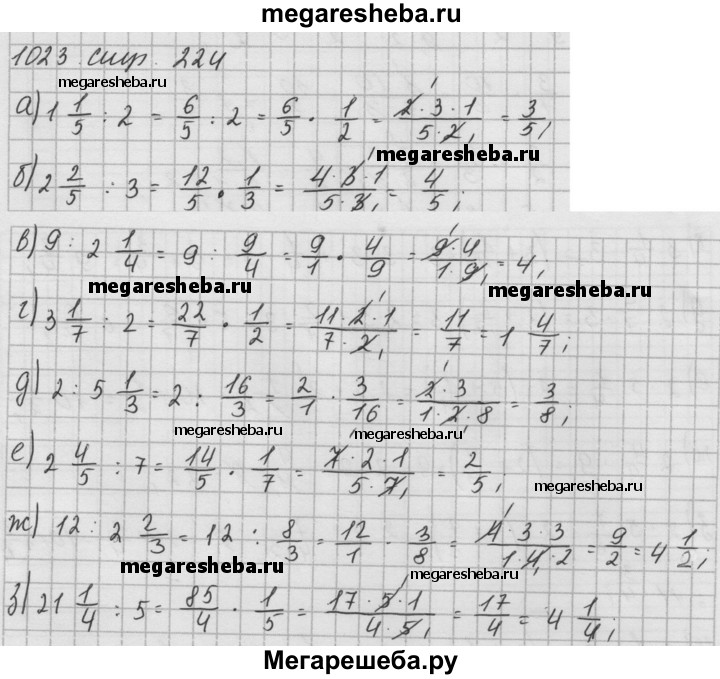 megaresheba.ru
1023 стр. 224
megaresheba.ru
а) 1 1/5 : 2 = 6/5 : 2 = 6/5 · 1/2 = 2·3·1/5·2 = 3/5;
megaresheba.ru
б) 2 2/5 : 3 = 12/5 · 1/3 = 4·3·1/5·3 = 4/5;
в) 9 : 2 1/4 = 9 : 9/4 = 9/1 · 4/9 = 9·4/1·9 = 4;
megaresheba.ru megaresheba.ru
г) 3 1/7 : 2 = 22/7 · 1/2 = 11·2·1/7·2 = 11/7 = 1 4/7;
д) 2 : 5 1/3 = 2 : 16/3 = 2/1 · 3/16 = 2·3/1·2·8 = 3/8;
megaresheba.ru megaresheba.ru
е) 2 4/5 : 7 = 14/5 · 1/7 = 7·2·1/5·7 = 2/5;
megaresheba.ru
ж) 12 : 2 2/3 = 12 : 8/3 = 12/1 · 3/8 = 4·3·3/1·4·2 = 9/2 = 4 1/2;
megaresheba.ru megaresheba.ru
з) 21 1/4 : 5 = 85/4 · 1/5 = 17·5·1/4·5 = 17/4 = 4 1/4;
Мегарешеба.ру